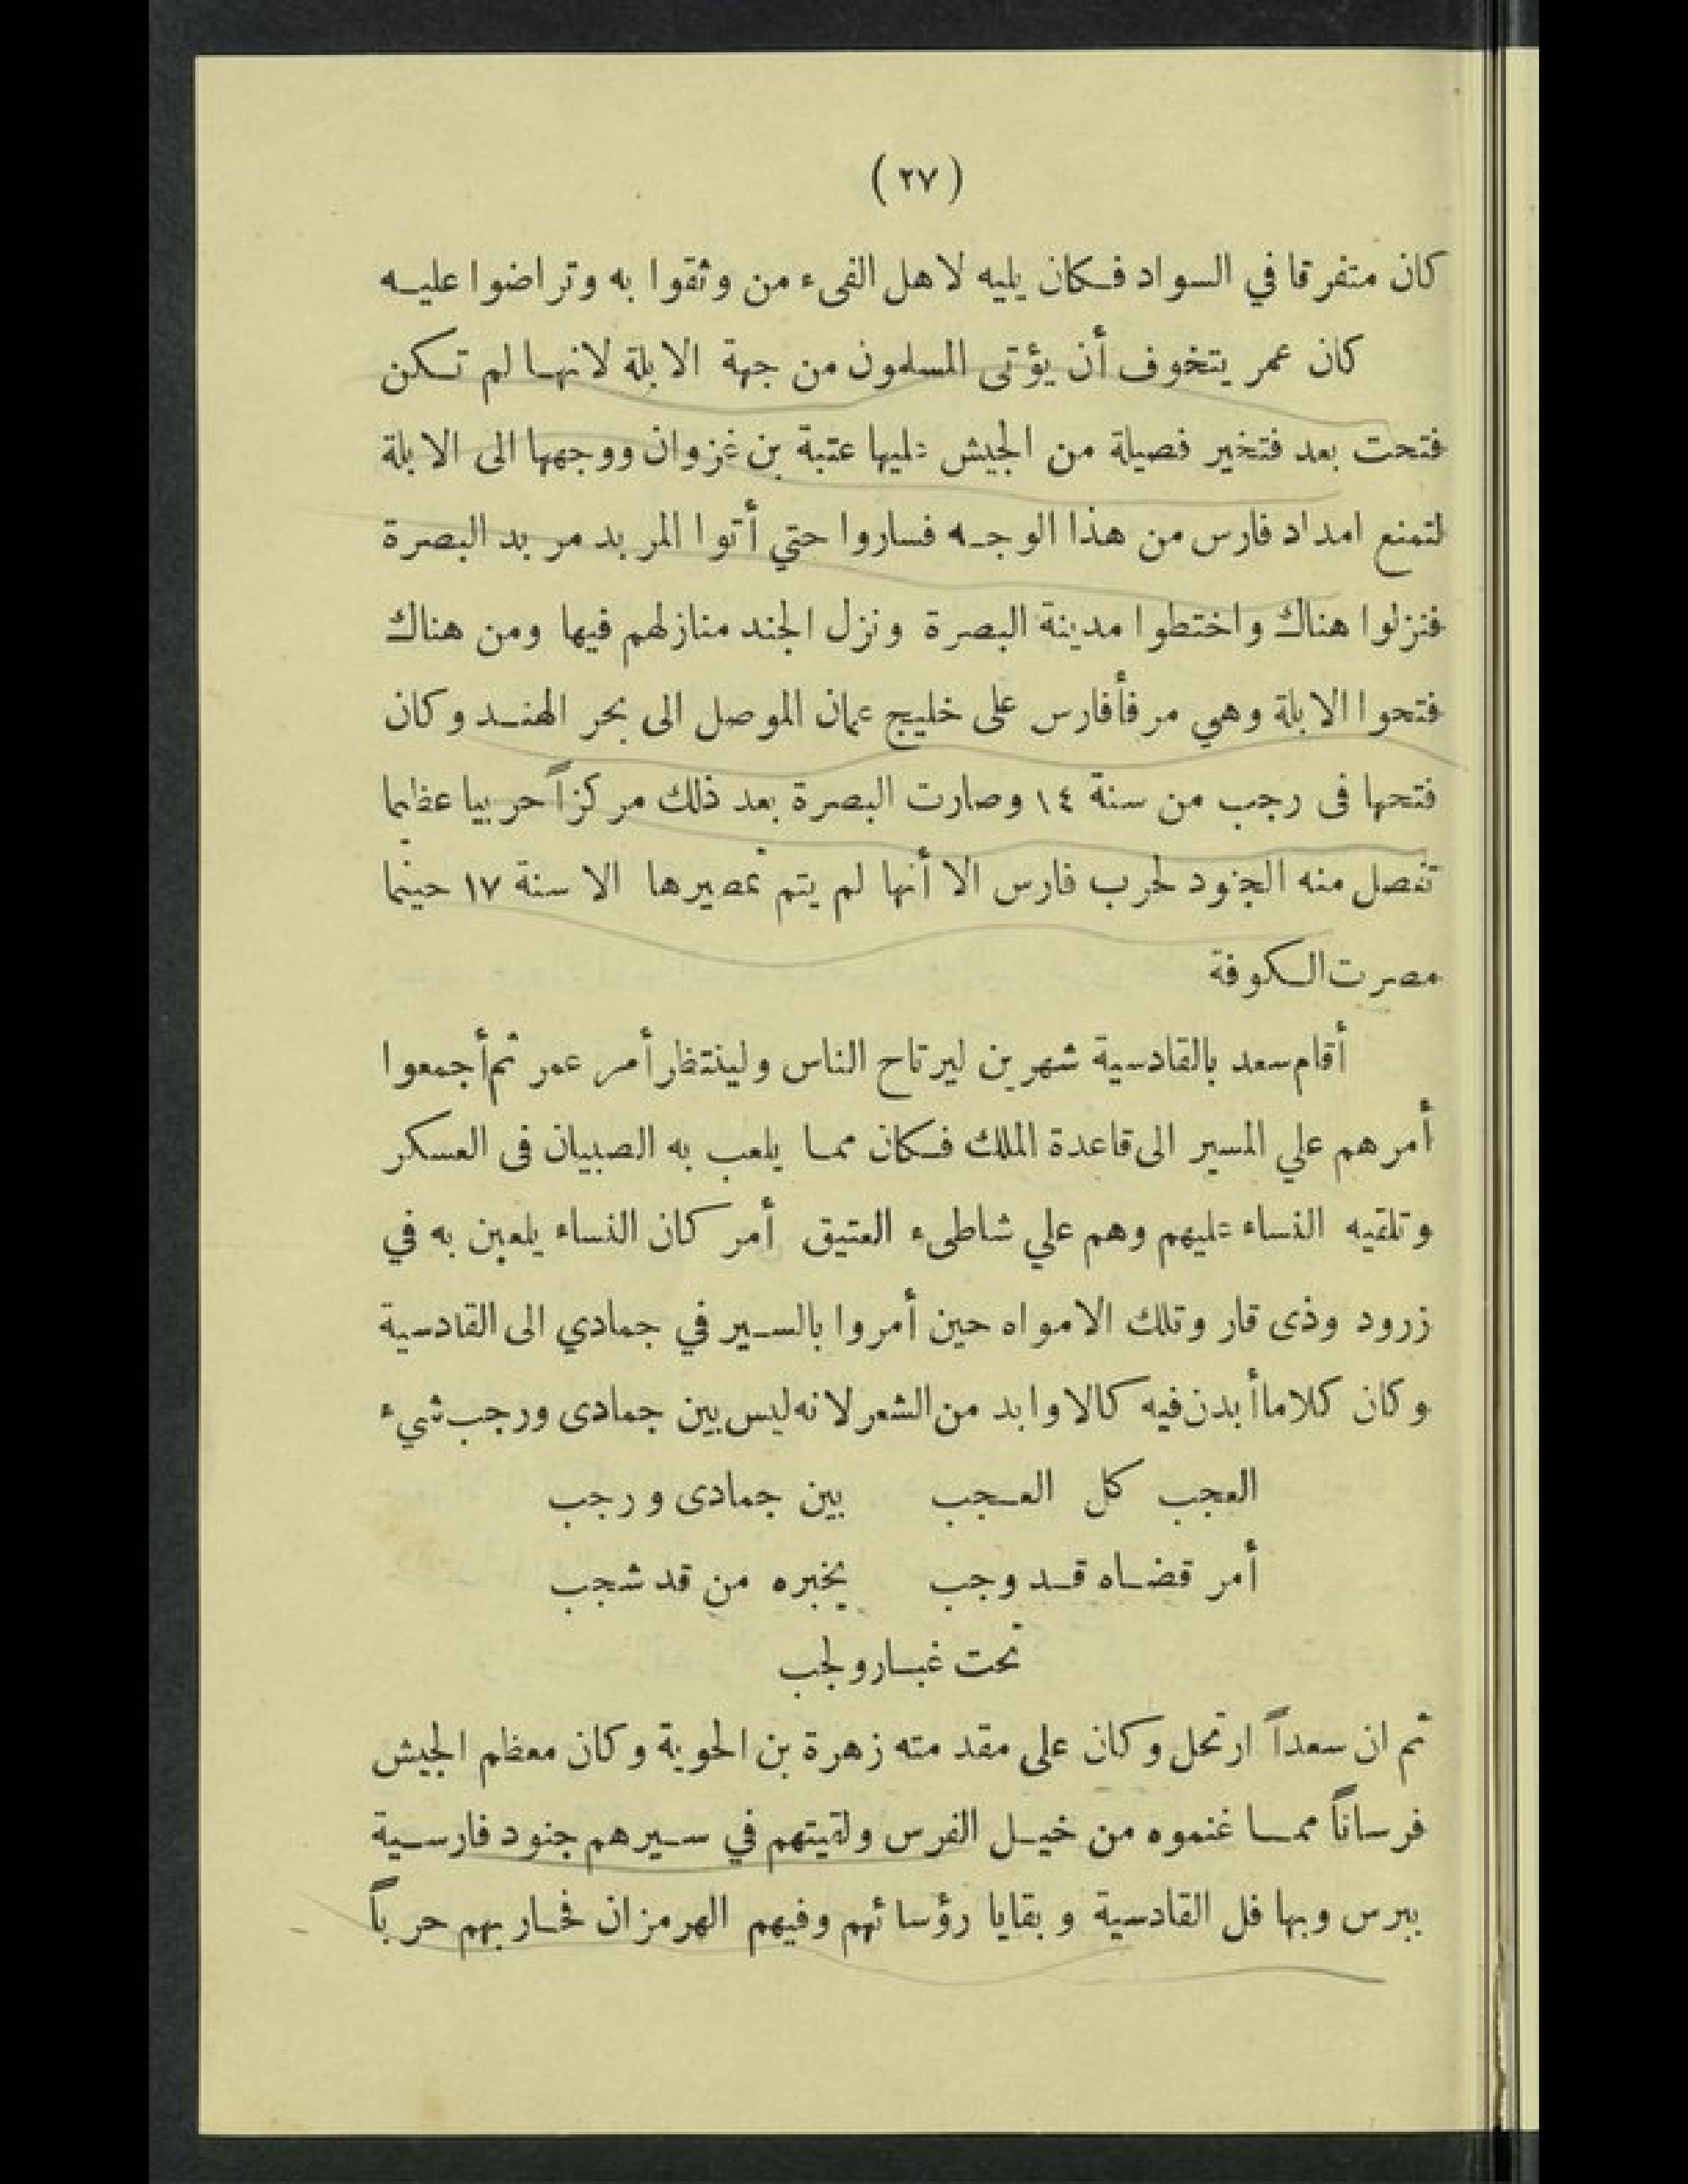 (٢٧)
كان متفرقا في السواد فكان يليه لاهل الفىء من وثقوا به وتراضوا عليه
كان عمر يتخوف أن يؤتى المسلمون من جهة الابلة لانها لم تكن
فتحت بعد فتخير فصيلة من الجيش عليها عتبة بن غزوان ووجهها الى الابلة
لتمنع امداد فارس من هذا الوجه فساروا حتي أتوا المربد مربد البصرة
فنزلوا هناك واختطوا مدينة البصرة ونزل الجند منازلهم فيها ومن هناك
فتحوا الابلة وهي مرفأ فارس على خليج عمان الموصل الى بحر الهند وكان
فتحها فى رجب من سنة ١٤ وصارت البصرة بعد ذلك مركزاً حربيا عظيما
تفصل منه الجنود لحرب فارس الا أنها لم يتم تمصيرها الا سنة ١٧ حينما
مصرت الكوفة
أقام سعد بالقادسية شهرين ليرتاح الناس ولينتظر أمر عمر ثم أجمعوا
أمرهم علي المسير الى قاعدة الملك فكان مما يلعب به الصبيان فى العسكر
وتلقيه النساء عليهم وهم علي شاطىء العتيق أمر كان النساء يلعبن به في
زرود وذى قار وتلك الامواه حين أمروا بالسير في جمادي الى القادسية
وكان كلاما أبدن فيه كالاوابد من الشعر لانه ليس بين جمادى ورجب شيء
العجب كل العجب بين جمادى ورجب
أمر قضاه قد وجب يخبره من قد شجب
تحت غبار ولجب
ثم ان سعداً ارتحل وكان على مقدمته زهرة بن الحوية وكان معظم الجيش
فرساناً مما غنموه من خيل الفرس ولقيتهم في سيرهم جنود فارسية
ببرس وبها فل القادسية وبقايا رؤسائهم وفيهم الهرمزان فحاربهم حرباً